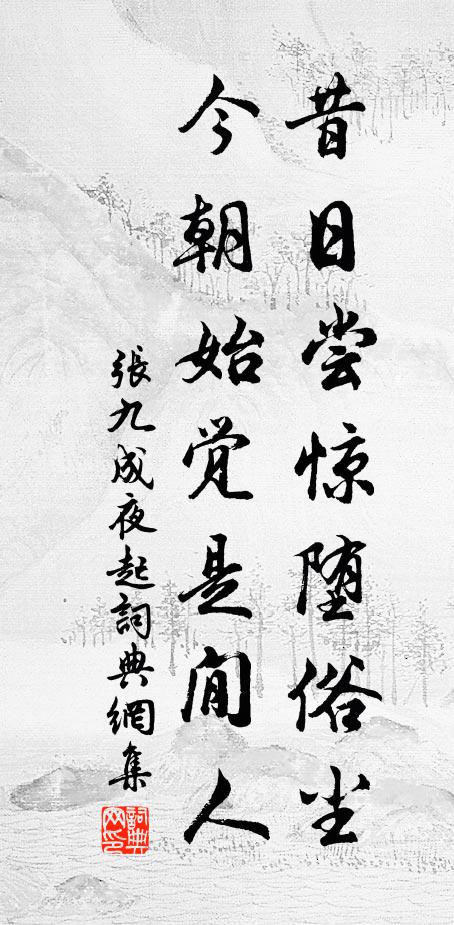 昔日尝惊堕俗尘
今朝始觉是闲人
張九成夜起詞典網集
詞典
网印